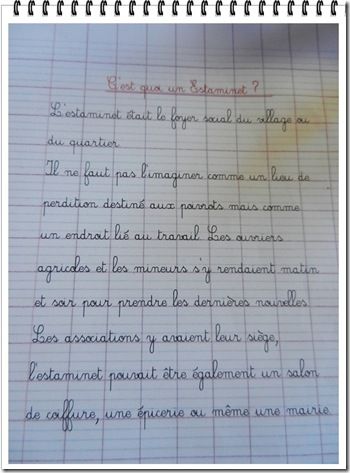 C'est quoi un Estaminet ?
L'estaminet était le foyer social du village ou
du quartier
Il ne faut pas l'imaginer comme un lieu de
perdition destiné aux poivrots mais comme
un endroit lié au travail Les ouvriers
agricoles et les mineurs s'y rendaient matin
et soir pour prendre les dernières nouvelles
Les associations y avaient leur siège,
l'estaminet pouvait être également un salon
de coiffure, une épicerie ou même une mairie